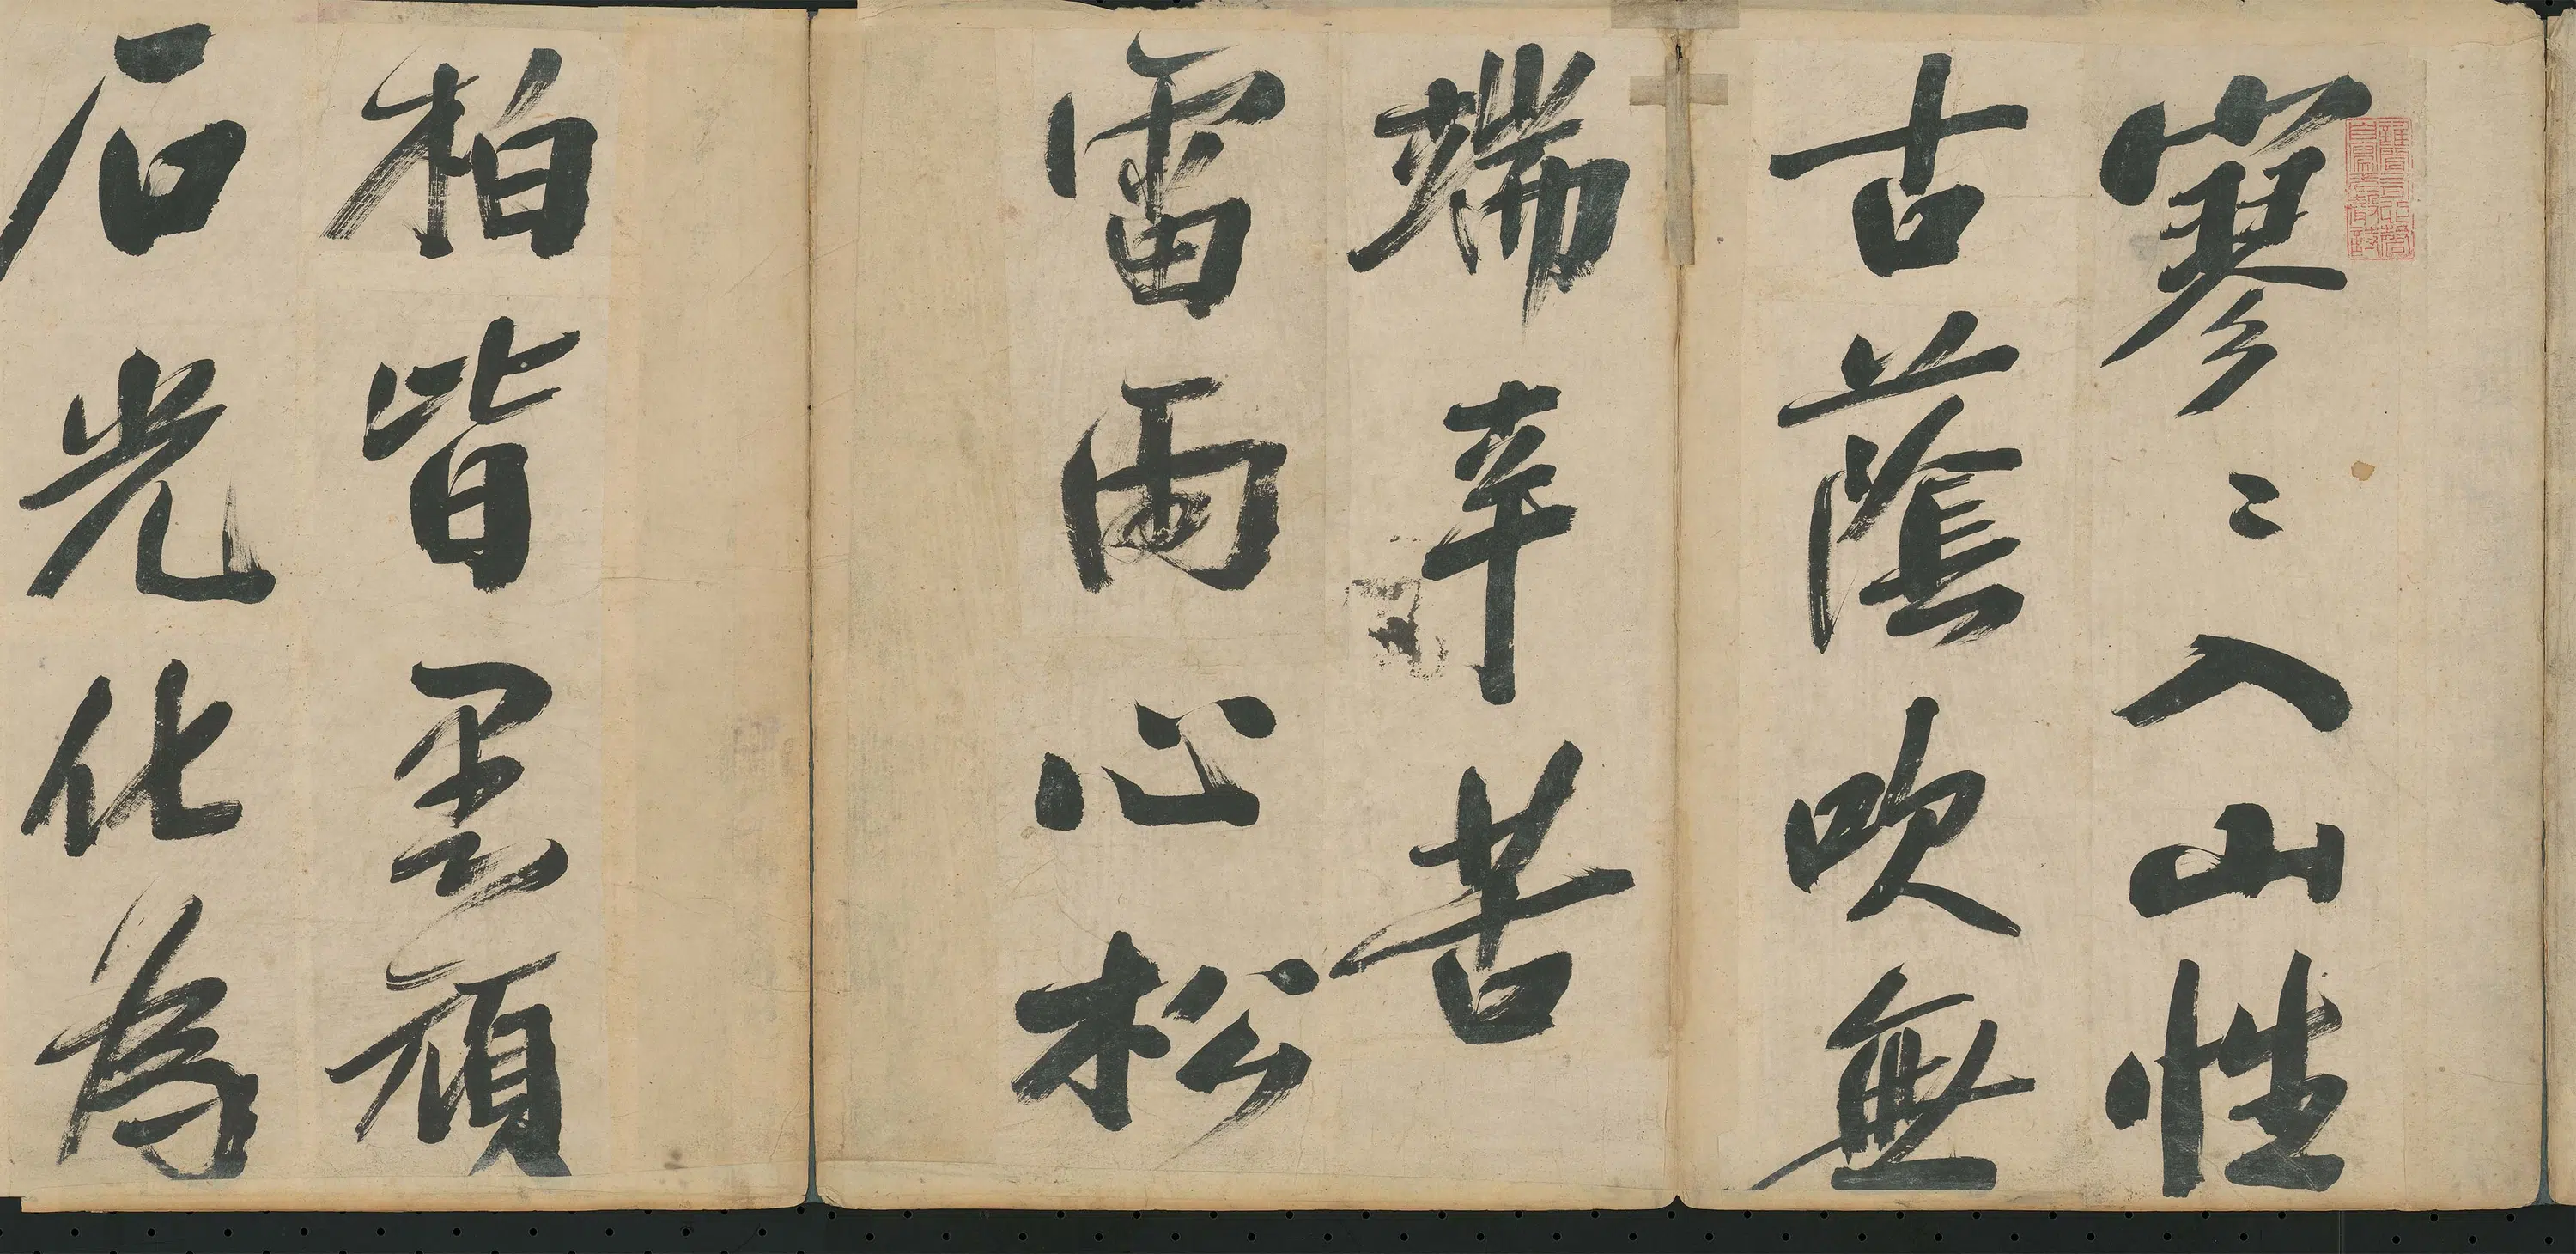 寥〻入山性
古蔭吹無
端辛苦
雷雨心松
柏皆頑
石光化為